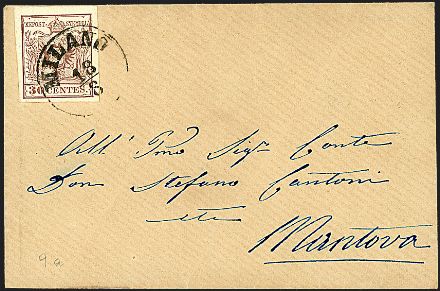 KKPOST-STEMPEL
30 CENTES.
MILANO
18
6
All' Pmo Sigr Conte
Don Stefano Cantoni
etc
Mantova
9a